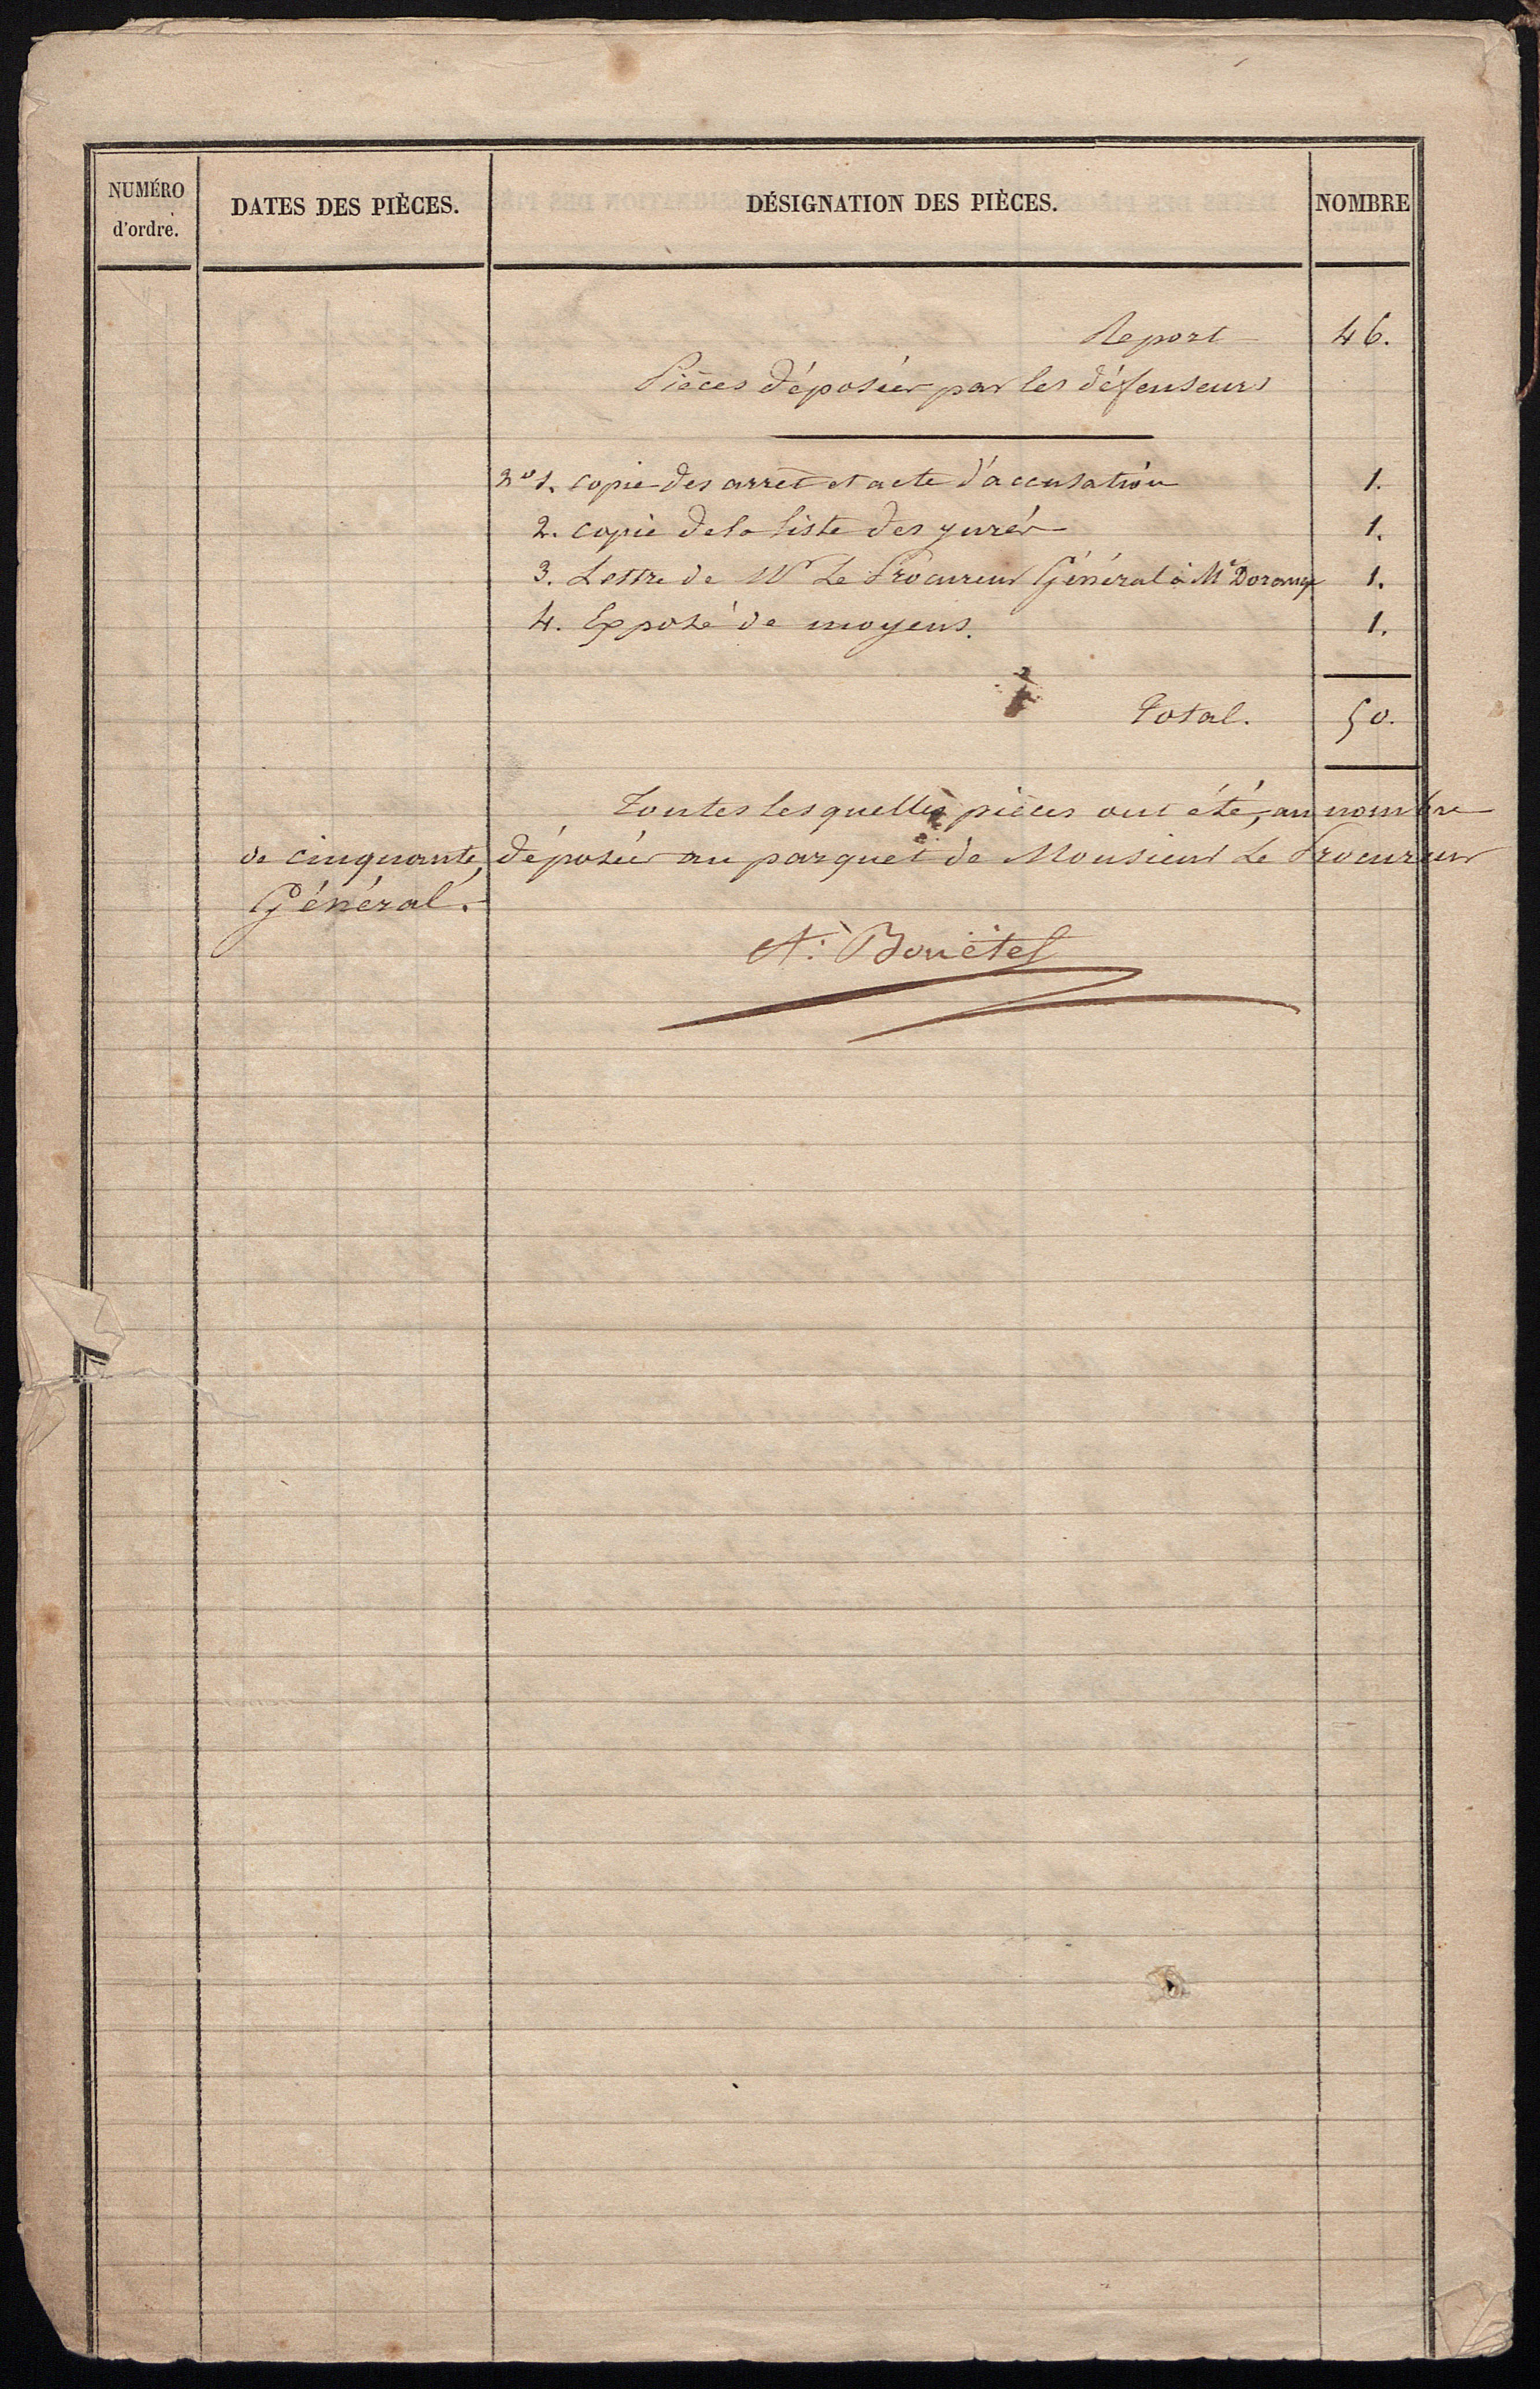 NUMÉRO d'ordre. DATES DES PIÈCES. DÉSIGNATION DES PIÈCES. NOMBRE
Report 46.
Pièces déposées par les défenseurs
no 1. copie des arrêt et acte d'accusation 1.
2. copie de la liste des jurés 1.
3. Lettre de Mr Le Procureur Général à Me 1.
4. Exposé de moyens. 1.
Total. 50.
Toutes lesquelles pièces ont été, au nombre
de cinquante, déposées au parquet de Monsieur Le Procureur
Général.
A. Bouëtel